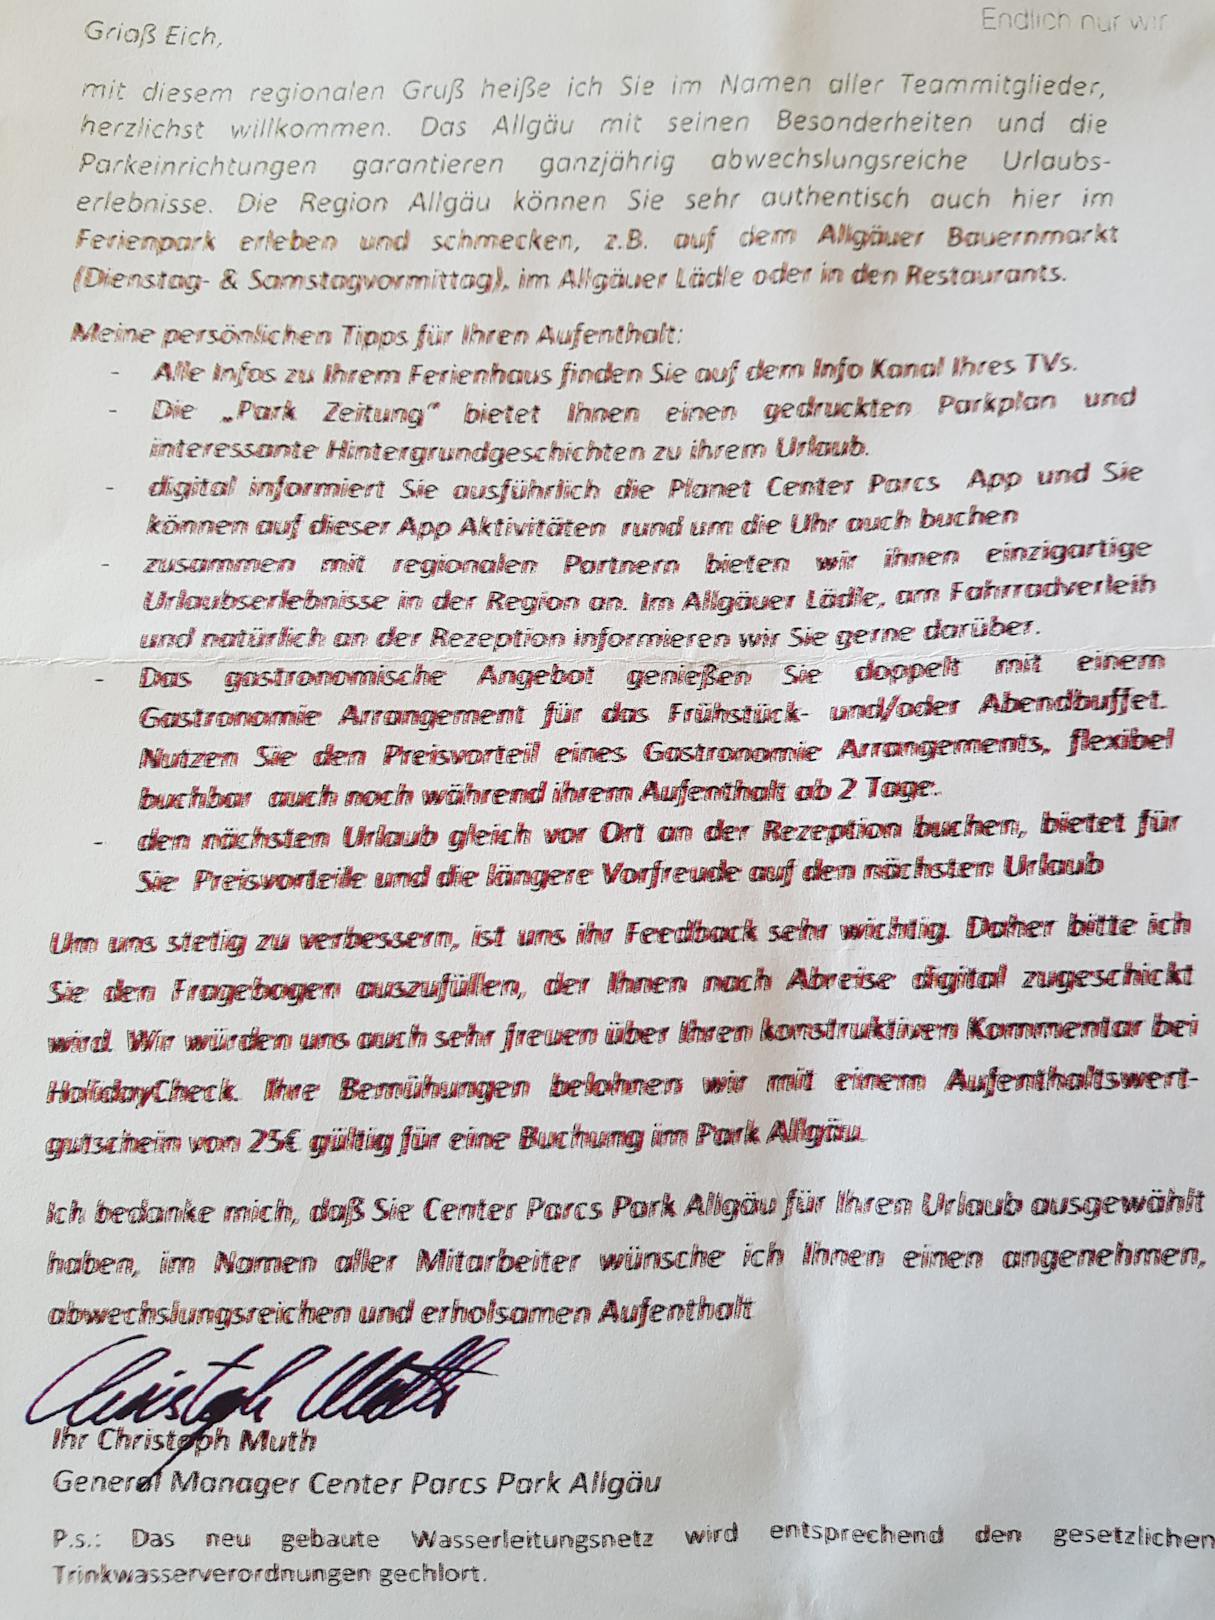 Endlich nur wir
Griaß Eich,
mit diesem regionalen Gruß heiße ich Sie im Namen aller Teammitglieder,
herzlichst willkommen. Das Allgäu mit seinen Besonderheiten und die
Parkeinrichtungen garantieren ganzjährig abwechslungsreiche Urlaubs-
erlebnisse. Die Region Allgäu können Sie sehr authentisch auch hier im
Ferienpark erleben und schmecken, z.B. auf dem Allgäuer Bauernmarkt
(Dienstag- & Samstagvormittag), im Allgäuer Lädle oder in den Restaurants.
Meine persönlichen Tipps für Ihren Aufenthalt:
- Alle Infos zu Ihrem Ferienhaus finden Sie auf dem Info Kanal Ihres TVs.
- Die „Park Zeitung" bietet Ihnen einen gedruckten Parkplan und
interessante Hintergrundgeschichten zu ihrem Urlaub.
- digital informiert Sie ausführlich die Planet Center Parcs App und Sie
können auf dieser App Aktivitäten rund um die Uhr auch buchen
- zusammen mit regionalen Partnern bieten wir ihnen einzigartige
Urlaubserlebnisse in der Region an. Im Allgäuer Lädle, am Fahrradverleih
und natürlich an der Rezeption informieren wir Sie gerne darüber.
- Das gastronomische Angebot genießen Sie doppelt mit einem
Gastronomie Arrangement für das Frühstück- und/oder Abendbuffet.
Nutzen Sie den Preisvorteil eines Gastronomie Arrangements, flexibel
buchbar auch noch während ihrem Aufenthalt ab 2 Tage.
- den nächsten Urlaub gleich vor Ort an der Rezeption buchen, bietet für
Sie Preisvorteile und die längere Vorfreude auf den nächsten Urlaub
Um uns stetig zu verbessern, ist uns ihr Feedback sehr wichtig. Daher bitte ich
Sie den Fragebogen auszufüllen, der Ihnen nach Abreise digital zugeschickt
wird. Wir würden uns auch sehr freuen über Ihren konstruktiven Kommentar bei
HolidayCheck. Ihre Bemühungen belohnen wir mit einem Aufenthaltswert-
gutschein von 25€ gültig für eine Buchung im Park Allgäu.
Ich bedanke mich, daß Sie Center Parcs Park Allgäu für Ihren Urlaub ausgewählt
haben, im Namen aller Mitarbeiter wünsche ich Ihnen einen angenehmen,
abwechslungsreichen und erholsamen Aufenthalt
Christoph Muth
Ihr Christoph Muth
General Manager Center Parcs Park Allgäu
P.s.: Das neu gebaute Wasserleitungsnetz wird entsprechend den gesetzlichen
Trinkwasserverordnungen gechlort.